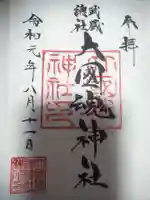 奉拝
武蔵
總社
大國魂神社
令和元年八月十一日